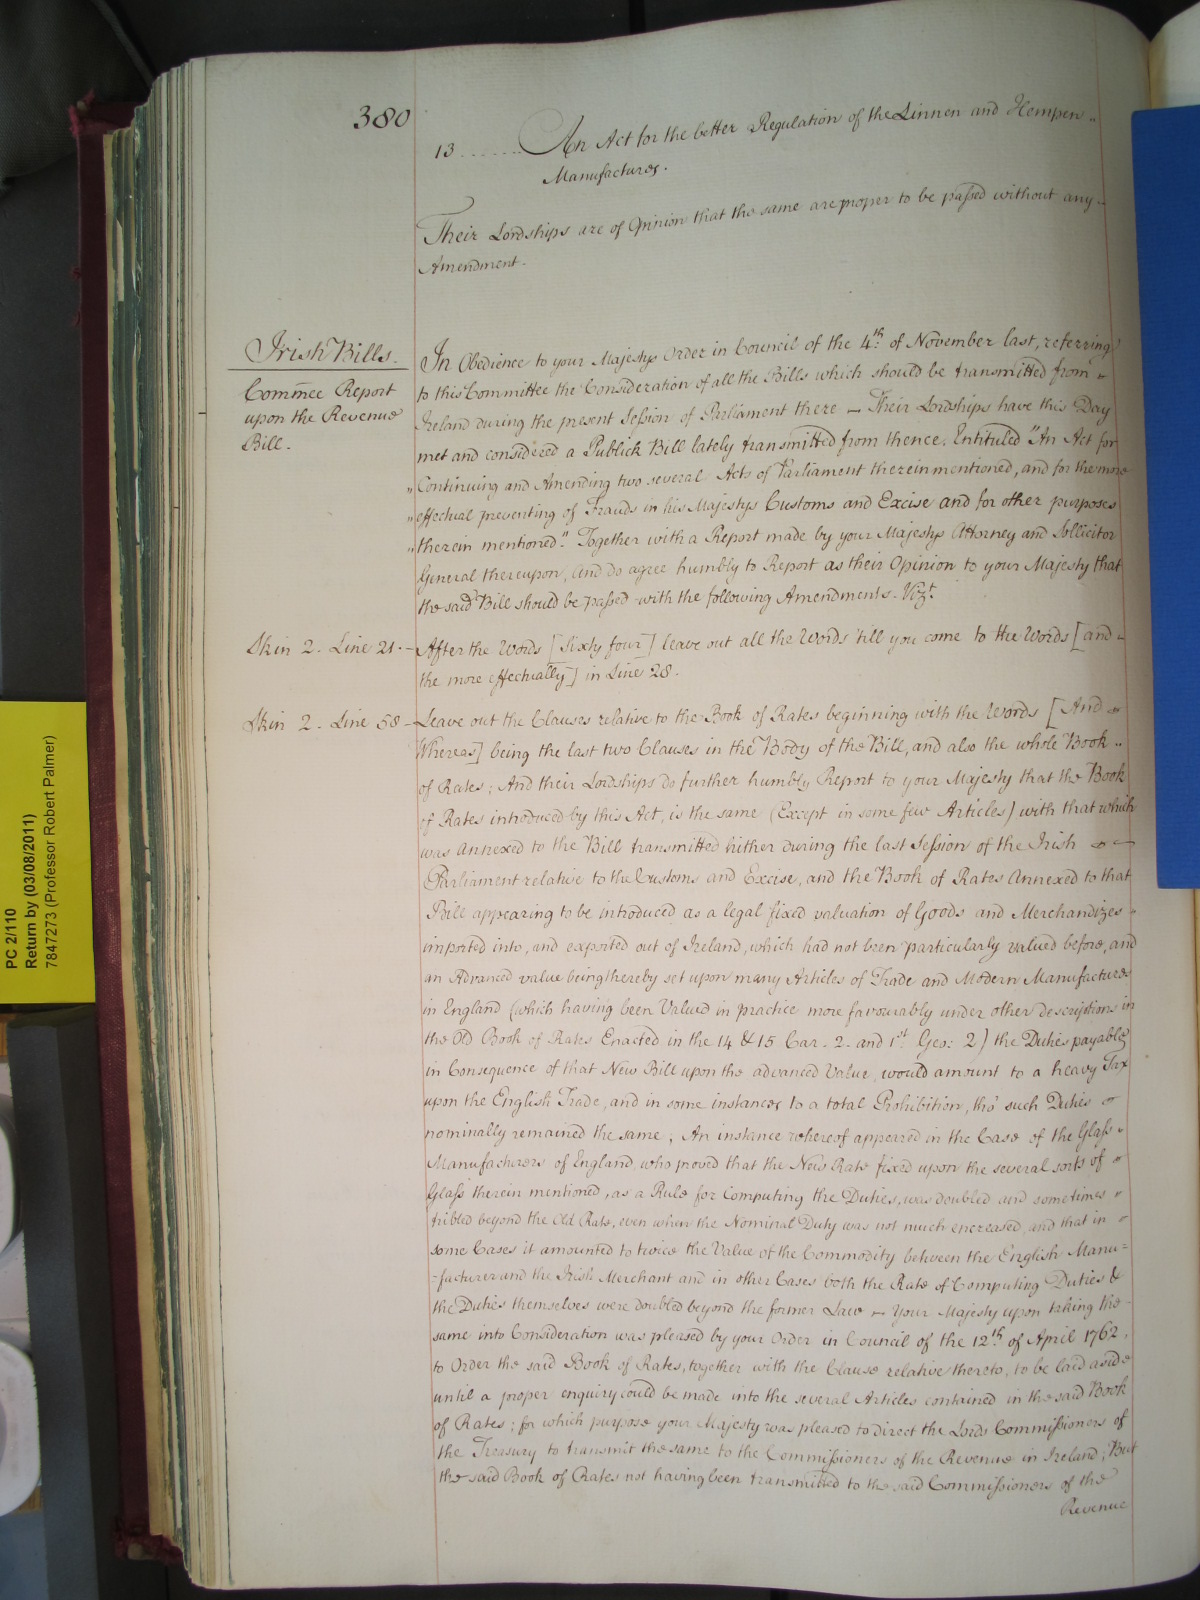 380
13 ...... An Act for the better Regulation of the Linnen and Hempen
Manufactures.
Their Lordships are of Opinion that the same are proper to be passed without any
Amendment.
Irish Bills.
Commēe Report
upon the Revenue
Bill.
In Obedience to your Majestys Order in Council of the 4th. of November last, referring
to this Committee the Consideration of all the Bills which should be transmitted from
Ireland during the present Session of Parliament there – Their Lordships have this Day
met and considered a Publick Bill lately transmitted from thence, Entituled "An Act for
"Continuing and Amending two several Acts of Parliament therein mentioned, and for the more
"effectual preventing of Frauds in his Majestys Customs and Excise and for other purposes
"therein mentioned". Together with a Report made by your Majestys Attorney and Sollicitor
General thereupon, And do agree humbly to Report as their Opinion to your Majesty that
the said Bill should be passed with the following Amendments. Vizt.
Skin 2. Line 21. – After the Words [Sixty four] leave out all the Words 'till you come to the Words [and
the more effectually] in Line 28.
Skin 2. Line 58 – Leave out the Clauses relative to the Book of Rates beginning with the Words [And
Whereas] being the last two Clauses in the Body of the Bill, and also the whole Book
of Rates; And their Lordships do further humbly Report to your Majesty that the Book
of Rates introduced by this Act, is the same (Except in some few Articles) with that which
was Annexed to the Bill transmitted hither during the last Session of the Irish
Parliament relative to the Customs and Excise, and the Book of Rates Annexed to that
Bill appearing to be introduced as a legal fixed valuation of Goods and Merchandizes
imported into, and exported out of Ireland, which had not been particularly valued before, and
an Advanced value being thereby set upon many Articles of Trade and Modern Manufactures
in England (which having been Valued in practice more favourably under other descriptions in
the Old Book of Rates Enacted in the 14 & 15 Car. 2. and 1st. Geo: 2) the Duties payable
in Consequence of that New Bill upon the advanced Value, would amount to a heavy Tax
upon the English Trade, and in some instances to a total Prohibition, tho' such Duties
nominally remained the same; An instance whereof apperred in the Case of the Glass
Manufacturers of England, who proved that the New Rate fixed upon the several sorts of
Glass therein mentioned, as a Rule for Computing the Duties, was doubled and sometimes
tribled beyond the Old Rate, even when the Nominal Duty was not much encreased, and that in
some Cases it amounted to twice the Value of the Commodity between the English Manu=
=facturer and the Irish Merchant and in other Cases both the Rate of Computing Duties &
the Duties themselves were doubled beyond the former Law – Your Majesty upon taking the
same into Consideration was pleased by your Order in Council of the 12th. of April 1762,
to Order the said Book of Rates, together with the Clause relative thereto, to be laid aside
until a proper enquiry could be made into the several Articles contained in the said Book
of Rates; for which purpose your Majesty was pleased to direct the Lords Commissioners of
the Treasury to transmit the same to the Commissioners of the Revenue in Ireland; But
the said Book of Rates not having been transmitted to the said Commissioners of the
Revenue
PC 2/110
Return by (03/08/2011)
7847273 (Professor Robert Palmer)